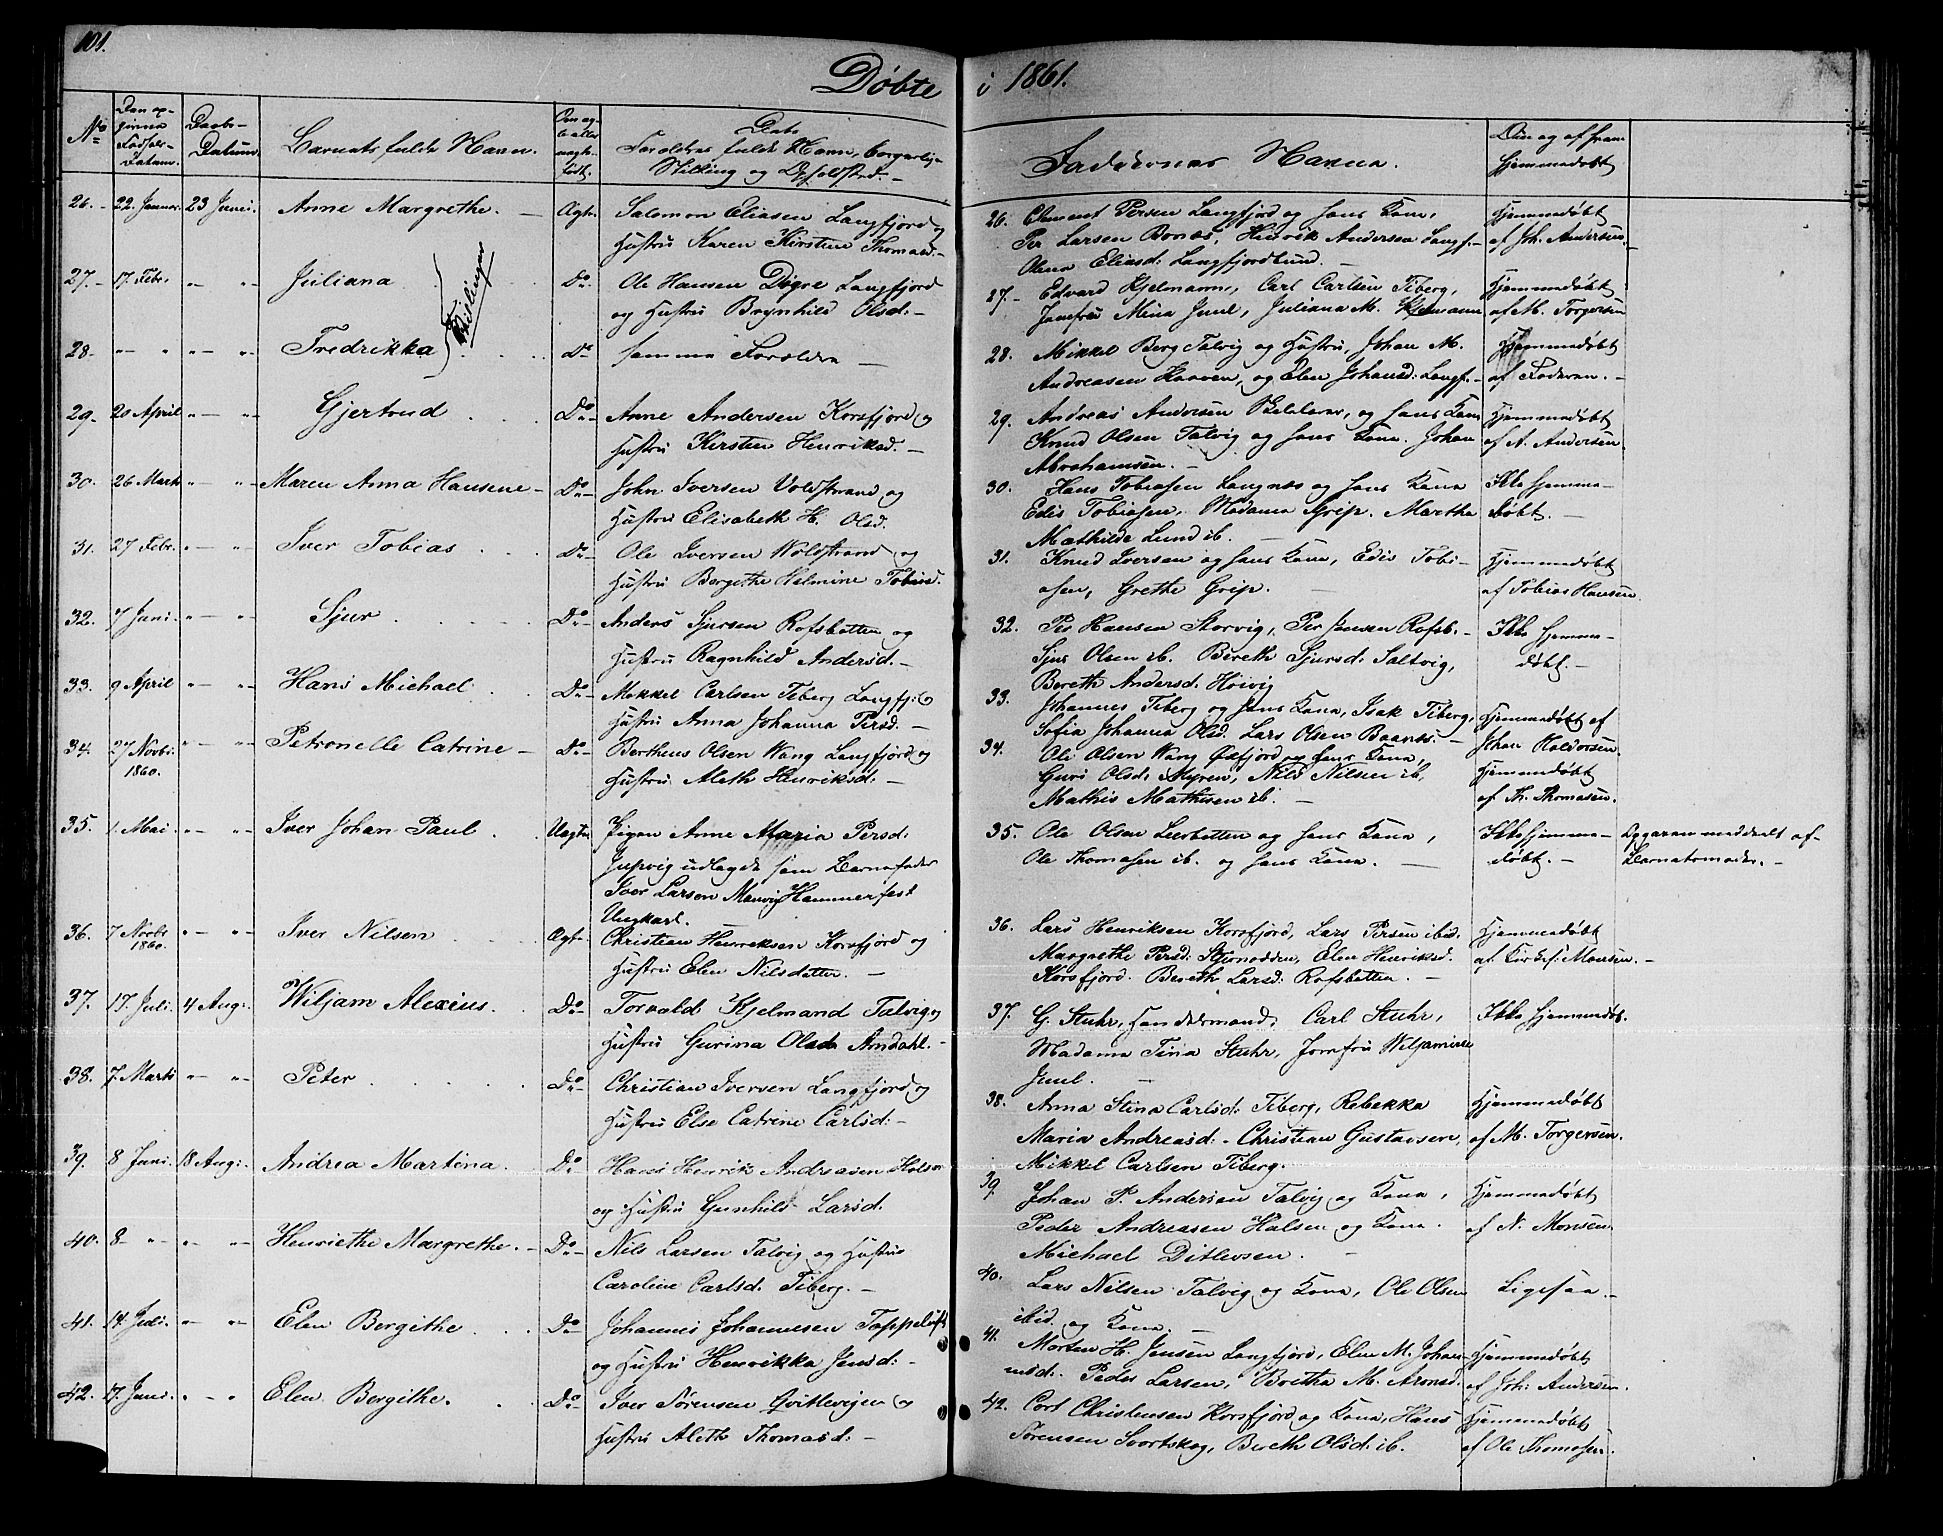 101.
Døbte i 1861.
No
Den opgivne Fødsels-Datum.
Daabs-Datum.
Barnets fulde Navn.
Om ægte eller uægte født.
Dets Forældres fulde Navn, borgerlige Stilling og Opholdsted.
Faddernes Navne.
Om og af hvem hjemmedøbt
26. 22 Januar. 23 Juni. Anne Margrethe. Ægte Salomon Eliasen Langfjord og
Hustru Karen Kirstine Thomasd.
26. Clement Persen Langfjord og hans Kone,
Per Larsen Bonæs, Henrik Andersen Langf.
Olena Eliasd: Langfjordbund.
Hjemmedøbt
af Joh. Andersen.
27. 17. Febr. " " Juliana Do Ole Hansen Døgre Langfjord
og Hustru Brynhild Olsd:
Tvillinger
27. Edvard Kjelmann, Carl Carlsen Tiberg,
Jomfru Mina Juul, Juliana M. Kjelmann
Hjemmedøbt
af M. Torgersen
28. " " " " Fredrikka Do samme Forældre
28. Mikkel Berg Talvig og Hustru, Johan M.
Andreasen Kaaven, og Elen Johansd: Langf.
Hjemmedøbt
af Faderen.
29. 20 April " " Gjertrud Do Arne Andersen Korsfjord og
Hustru Kirsten Henriksd.
29. Andreas Andersen og hans Kone
Knud Olsen Talvig og hans Kone. Johan
Abrahamsen.
Hjemmedøbt
af A. Andersen.
30. 26 Marts " " Maren Anna Hansine Do John Iversen Voldstrand og
Hustru Elisabeth H. Olsd.
30. Hans Tobiasen Langnæs og hans Kone
Edis Tobiasen, Madame Grip. Marthe
Mathilde Lund ib.
Ikke hjemme-
døbt.
31. 27 Febr. " " Iver Tobias Do Ole Iversen Woldstrand og
Hustru Bergithe Helmine Tobiasd.
31. Knud Iversen og hans Kone, Edis Tobi-
asen, Grethe Grip.
Hjemmedøbt
af Tobias Hansen.
32. 7 Juni. " " Sjur Do Anders Sjursen Rofsbotten og
Hustru Ragnhild Andersd.
32. Per Hansen Storvig, Per Jensen Rofsb.
Sjur Olsen ib. Bereth Sjursd: Saltvig,
Bereth Andersd: Höivig
Ikke hjemme-
døbt.
33. 9 April " " Hans Michael Do Mikkel Carlsen Tiberg Langfj: og
Hustru Anna Johanna Persd.
33. Johannes Tiberg og hans Kone, Isak Tiberg,
Sofia Johanna Olsd. Lars Olsen Baanes.
Hjemmedøbt af
Johan Haldorsen.
34. 27 Novbr: 1860. " " Petronelle Catrine Do Bertheus Olsen Wang Langfjord og
Hustru Aleth Henriksd:
34. Ole Olsen Wang Øxfjord og hans Kone,
Guri Olsd: Myren, Nils Nilsen ib.
Mathis Mathisen ib.
Hjemmedøbt
af Th. Thomasen.
35. 1. Mai. " " Iver Johan Paul Uægte Pigen Anne Maria Persd:
udlagde som Barnefader
Iver Larsen Hammerfest
Ungkarl.
35. Ole Olsen Leerbotten og hans Kone,
Ole Thomasen ib. og hans Kone.
Ikke hjemme-
døbt.
Opgaven meddeelt af
Barnets moder.
36. 7 Novbr 1860. " " Iver Nilsen Ægte Christian Henriksen Korsfjord og
Hustru Elen Nilsdatter.
36. Lars Henriksen Korsfjord, Lars Persen ibid.
Margrethe Persd: Stjernodden, Elen Henriksd.
Korsfjord. Bereth Larsd: Rofsbotten.
Hjemmedøbt
af Kirkes: Monsen.
37. 17. Juli. 4 Aug: Wiljam Alexius Do Torvald Kjelmand Talvig og
Hustru Gurina Olsda Amdahl.
37. G. Stuhr, Handelsmand, Carl Stuhr,
Madame Tina Stuhr, Jomfru Wiljamine
Juul.
Ikke hjemmedøb.
38. 7. Marts " " Peter Do Christian Iversen Langfjord og
Hustru Else Catrine Carlsd:
38. Anna Stina Carlsd: Tiberg, Rebekka
Maria Andreasd: Christian Gustavsen,
Mikkel Carlsen Tiberg.
Hjemmedøbt
af M. Torgersen.
39. 8 Juni. 18 Aug: Andrea Martina. Do Hans Henrik Andreasen Halsen
og Hustru Gunhild Larsd.
39. Johan P. Andersen Talvig og Kone,
Peder Andreasen Halsen og Kone.
Michael Ditlevsen.
Hjemmedøbt
af N. Monsen.
40. 8 " " " Henriethe Margrethe. Do Nils Larsen Talvig og Hustru
Caroline Carlsd. Tiberg.
40. Lars Nilsen Talvig og Kone, Ole Olsen
ibid. og Kone.
Ligesaa.
41. 14. Juli. " " Elen Bergithe Do Johannes Johannesen Tappeluft
og Hustru Henrikka Jensd:
41. Morten H. Jensen Langfjord, Elen M. Johan-
nesd. Peder Larsen, Britha M. Aronsd.
Hjemmedøbt
af Joh: Andersen.
42. 17. Juni. " " Elen Bergithe. Do Iver Sørensen Qvitlevigen og
Hustru Aleth Thomasd:
42. Cort Christensen Korsfjord og Kone, Hans
Sørensen Svartskog, Bereth Olsd: ib.
Hjemmedøbt
af Ole Thomasen.